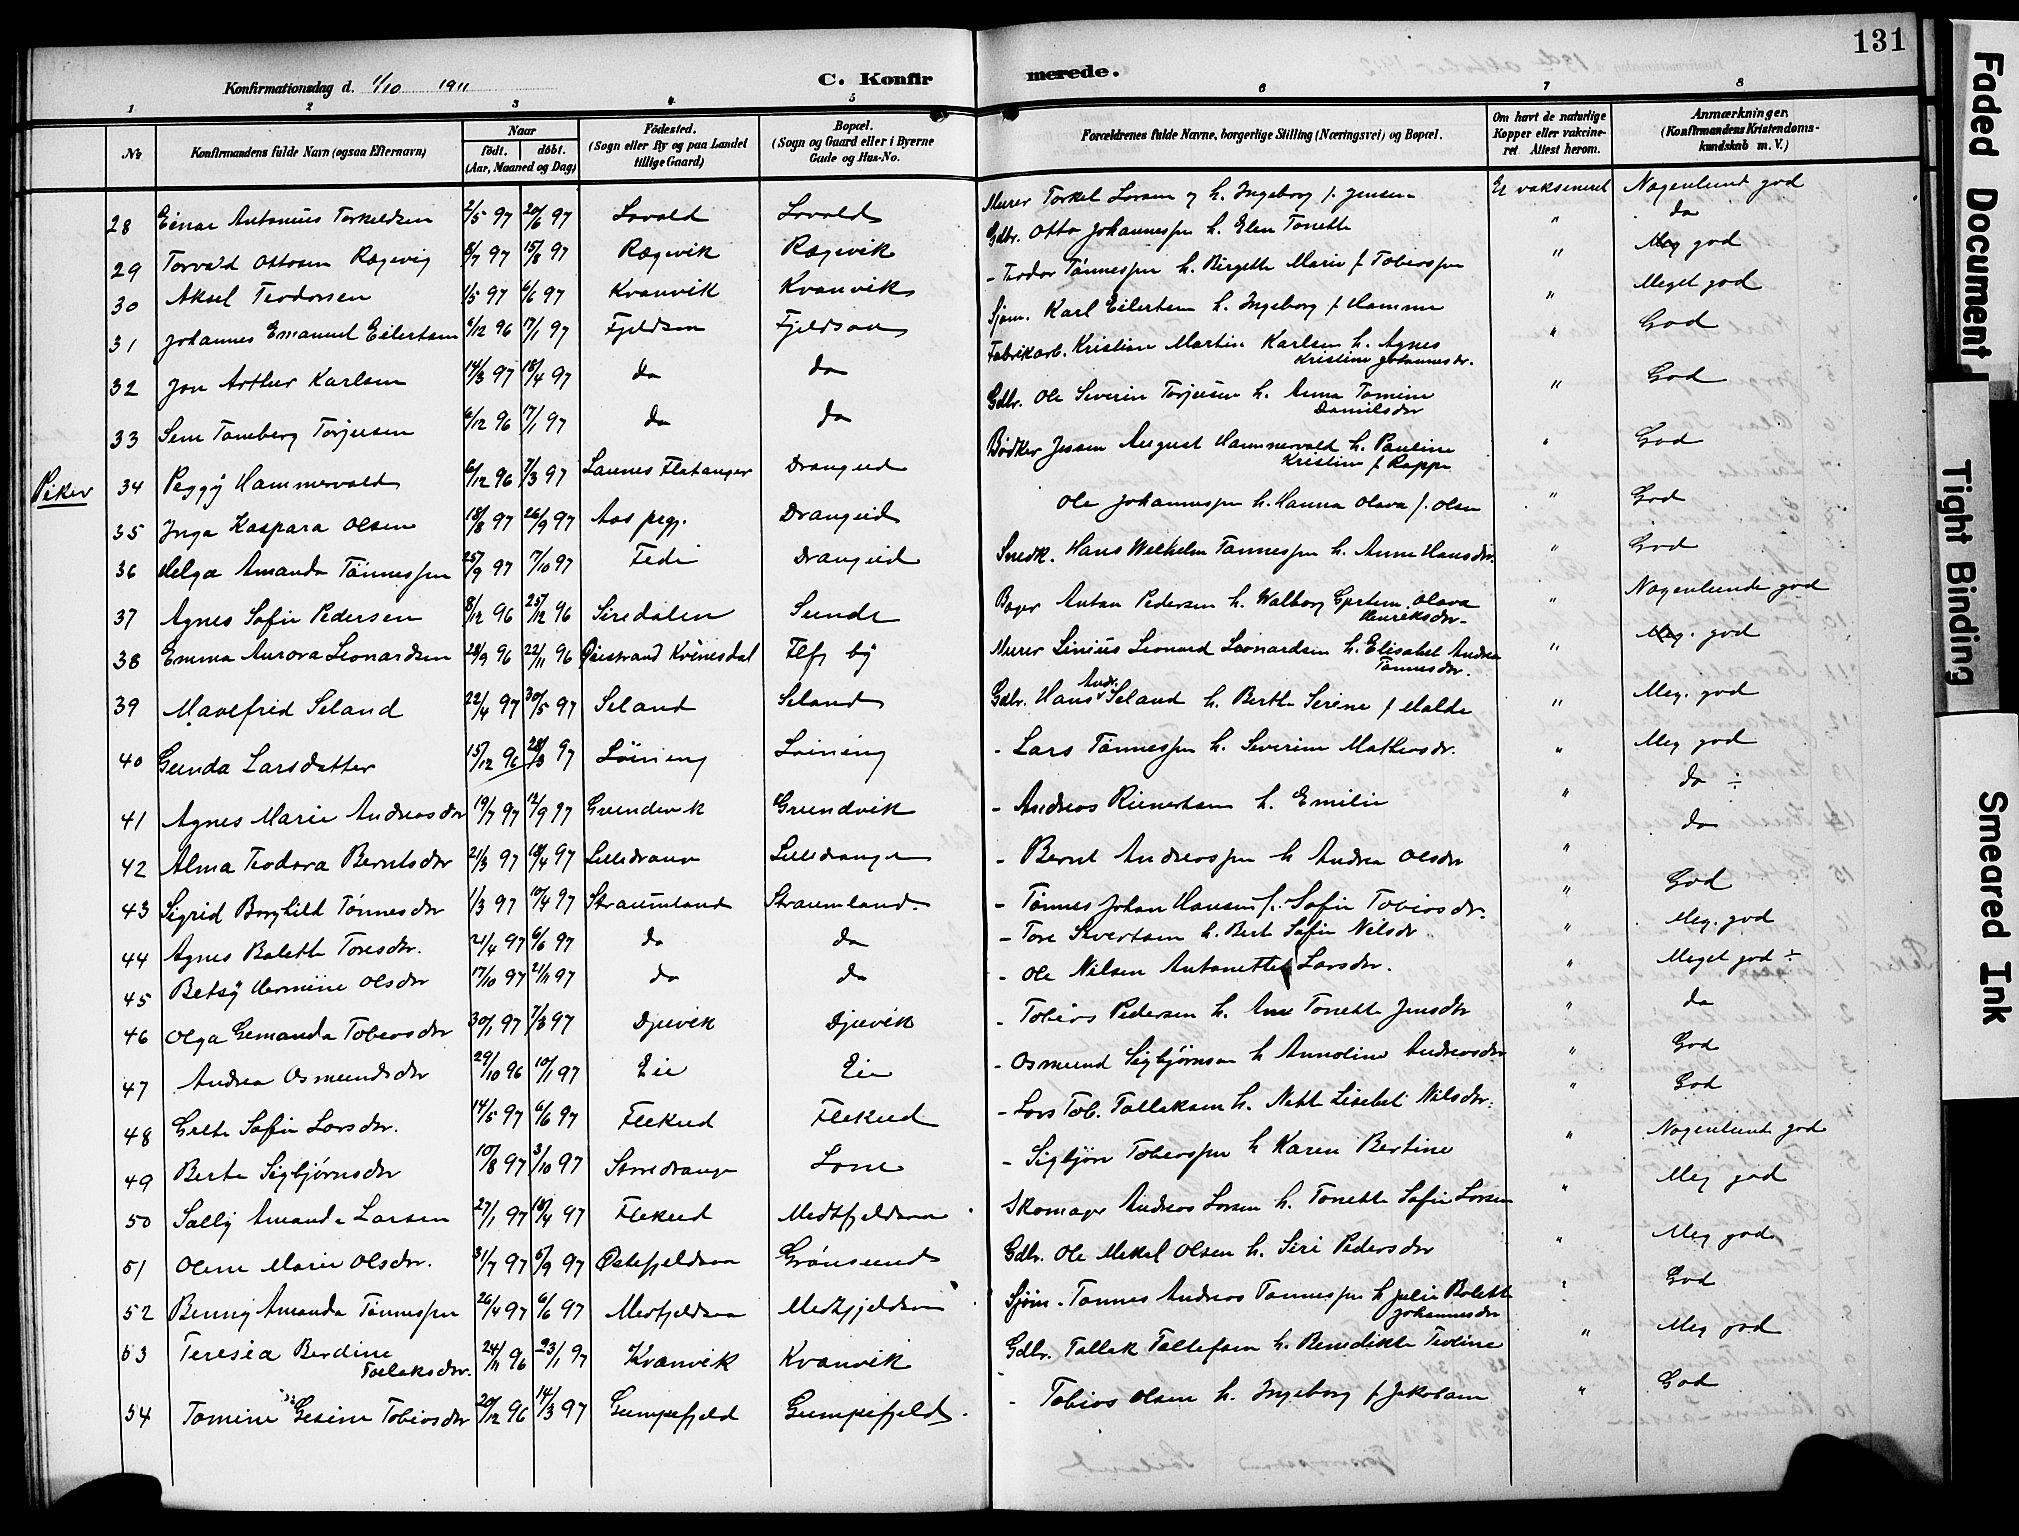 131
Konfirmationsdag d. 1/10 1911
C. Konfirmerede.
1 2 3 4 5 6 7 8
No
Konfirmandens fulde Navn (ogsaa Efternavn)
Naar
født. døbt.
(Aar, Maaned og Dag)
Fødested.
(Sogn eller By og paa Landet
tillige Gaard)
Bopæl.
(Sogn og Gaard eller i Byerne
Gade og Hus-No.
Forældrenes fulde Navne, borgerlige Stilling (Næringsvei) og Bopæl.
Om havt de naturlige
Kopper eller vakcine-
ret Attest herom.
Anmærkninger.
(Konfirmandens Kristendoms-
kundskab m. V.)
28 Einar Antonius Torkeldsen 2/5 97 20/6 97 Lovald Lovald Murer Torkel Larsen og h. Ingeborg f. Jensen Er vaksineret Nogenlunde god
29 Torvald Ottosen Rægevig 8/7 97 15/8 97 Rægevik Rægevik Gdbr. Otto Johannessen h. Elen Tonette " do
30 Aksel Teodorsen 1/5 97 6/6 97 Kvanvik Kvanvik - Teodor Tønnessen h. Birgette Marie f Tobiassen " Meg god
31 Johannes Emanuel Eilertsen 6/12 96 17/1 97 Fjeldsaa Fjeldsaa Sjøm. Karl Eilertsen h. Ingeborg f Hamme " Meget god
32 Jon Arthur Karlsen 14/3 97 18/4 97 do do Fabrikarb. Kristian Martin Karlsen h. Agnes
Kristine Johannesdr. " God
33 Sem Tomberg Torjusen 6/12 96 17/1 97 do do Gdbr. Ole Severin Torjusen h. Anna Tomine
Danielsdr " God
Piker 34 Peggy Hammervold 6/12 96 7/3 97 Launes Flatanger Drangeid Bødker Jessen August Hammervold h. Pauline
Kristine f Rappe " God
35 Inga Kaspara Olsen 18/8 97 26/9 97 Aas pgj. Drangeid Ole Johannessen h. Hanna Olava f. Olsen " God
36 Helga Amanda Tønnessen 25/9 97 7/10 97 Fedi Drangeid Snedk. Hans Wilhelm Tønnessen h. Anne Hansdr. " God
37 Agnes Sofie Pedersen 8/12 96 25/12 96 Siredalen Sunde Bager Anton Pedersen h. Walborg Olava
Henriksdr. " Nogenlunde god
38 Emma Aurora Leonardsen 28/9 96 22/11 96 Øiestrand Kvinesdal Flf by Murer Sinius Leonard Leonardsen h. Elisabet Andrea
Tønnesdr. " Meg. god
39 Mavefrid Seland 22/4 97 30/5 97 Seland Seland Gdbr. Hans Andr. Seland h. Berthe Serine f Malde " Meg. god
40 Gunda Larsdatter 15/12 96 28/3 97 Løining Løining - Lars Tønnessen h. Severine Mathiasdr. " Meg god
41 Agnes Marie Andreasdr 19/7 97 12/9 97 Grundevik Grundvik - Andreas Reinertsen h. Emilie " do ÷
42 Alma Teodora Berntsdr 21/3 97 18/4 97 Lilledrange Lilledrange - Bernt Andreassen h Andrea Olsdr " do
43 Sigrid Borghild Tønnesdr 1/3 97 10/4 97 Straumland Straumland. - Tønnes Johan Hansen f. Sofie Tobiasdr. " God
44 Agnes Bolette Toresdr. 21/4 97 6/6 97 do do - Tore Sivertsen h. Bert Sofie Nilsdr " Meg. god
45 Betsy Hermine Olsdr 17/10 97 21/11 97 do do - Ole Nilsen Antonette Larsdr. " Meget god ÷
46 Olga Gemanda Tobiasdr 30/1 97 7/3 97 Djuvik Djuvik - Tobias Pedersen h. Ane Tonette Jensdr " do
47 Andrea Osmundsdr 29/10 96 10/1 97 Eie Eie - Osmund Sigbjørnsen h Annoline Andreasdr " God
48 Grete Sofie Larsdr. 14/5 97 6/6 97 Flekud Flekud - Lars Tob. Tolleksen h. Nette Lisebet Nilsdr. " God
49 Berte Sigbjørnsdr 10/8 97 3/10 97 Storedrange Lone - Sigbjørn Tobiassen h Karen Bertine " Nogenlunde god
50 Sally Amanda Larsen 27/1 97 18/4 97 Flekud Midtfjeldsaa Skomager Andreas Larsen h. Tonette Sofie Larsen " Meg god
51 Oline Marie Olsdr. 31/7 97 5/9 97 Østefjeldsaa Grønsund Gdbr. Ole Mekal Olsen h. Siri Pedersdr " Meg god
52 Benny Amanda Tønnessen 26/4 97 6/6 97 Midtfjeldsaa Midtfjeldsaa Sjøm. Tønnes Andreas Tønnessen h Julie Bolette
Johannesdr " God
53 Teresia Berdine
Tolleksdr. 24/11 96 23/1 97 Kvanvik Kvanvik Gdbr. Tollek Tollefsen h. Benedikte Teoline " Meg god
54 Tomine Gesine Tobiasdr 20/12 96 14/3 97 Gumpefjeld Gumpefjeld. - Tobias Olsen h. Ingeborg f Jakobsen " God
Faded Document
Tight Binding
Smeared Ink